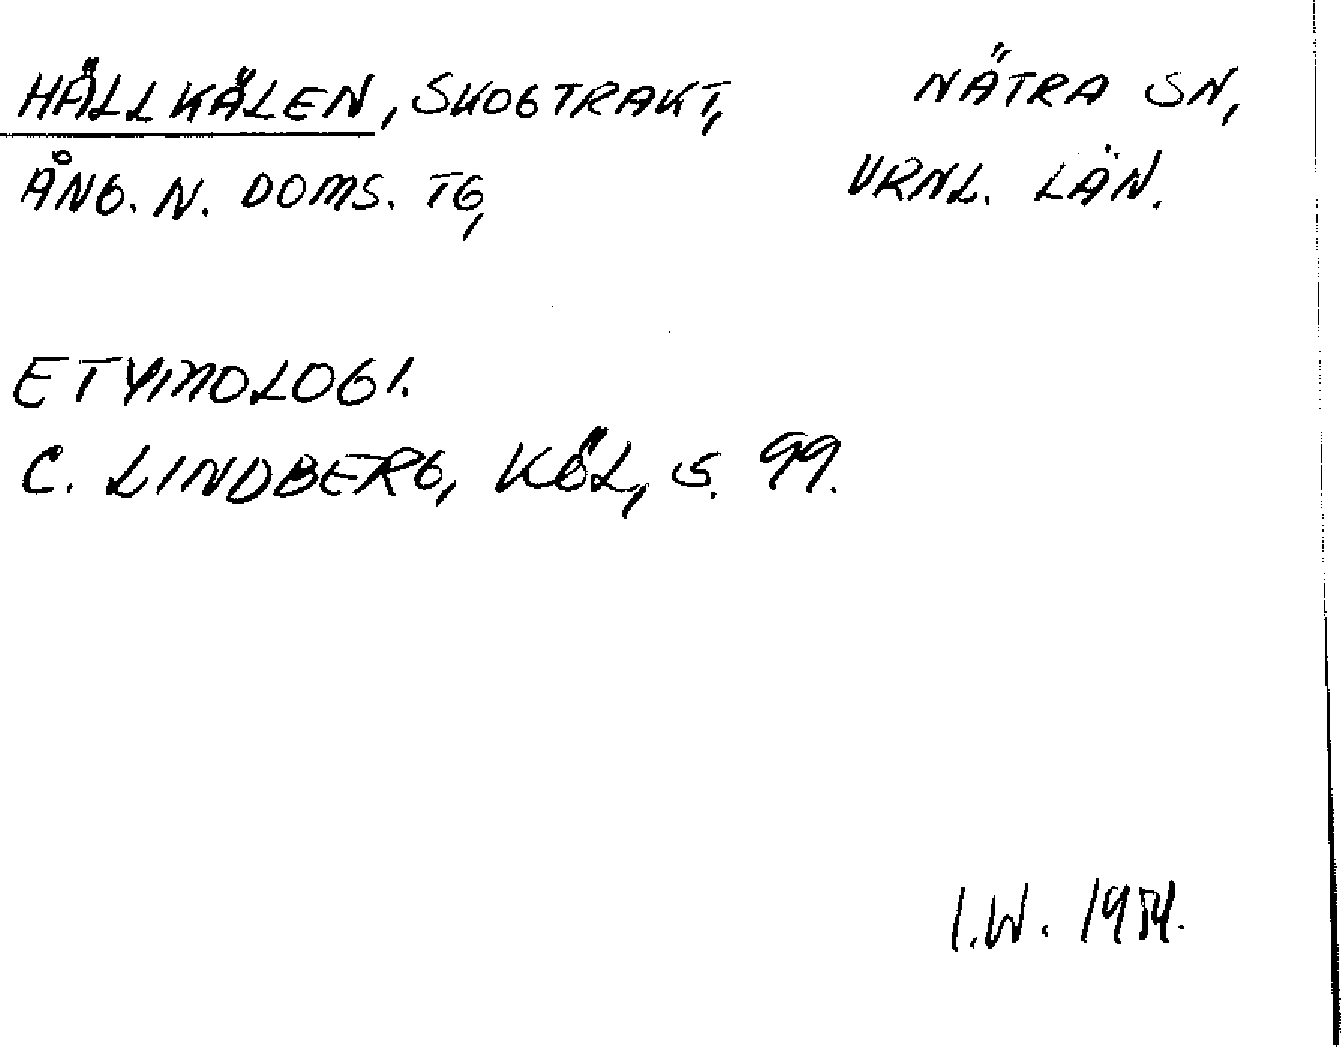 HÄLLKÄLEN, SKOGTRAKT, NÄTRA SN,
ÅNG. N. DOMS. TG, VRNL. LÄN.
ETYMOLOGI.
C. LINDBERG, KÖL, S. 99.
I.W.